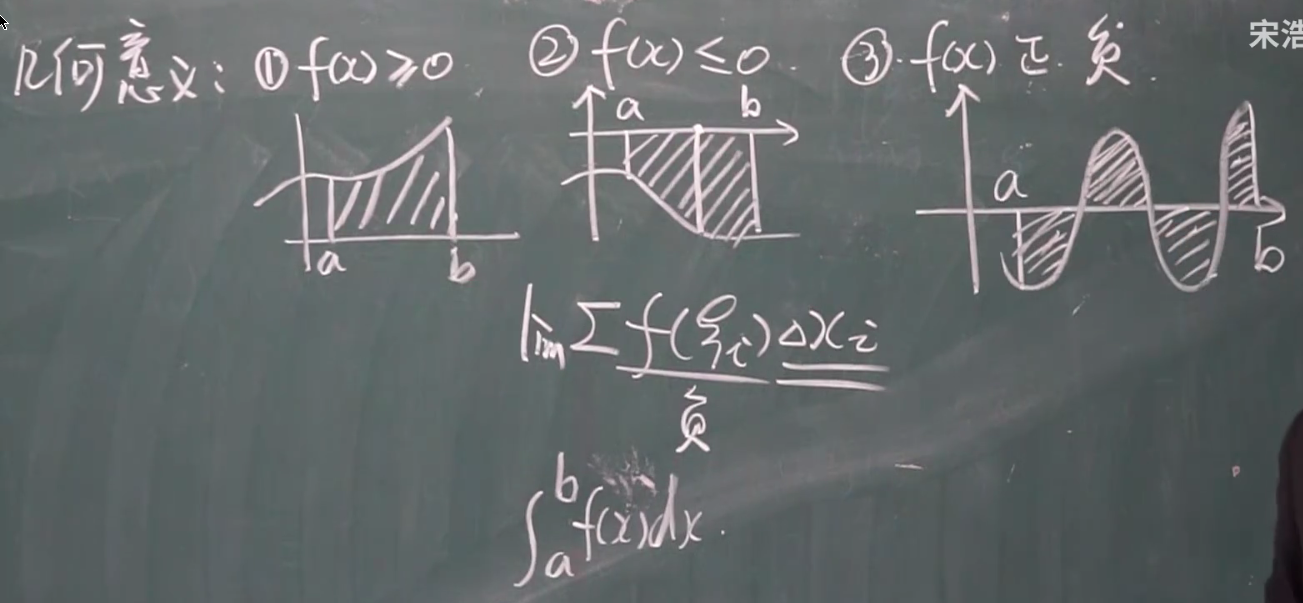 宋浩
几何意义: ① f(x)≥0 ② f(x)≤0. ③. f(x) 正. 负.
a b
a b
a b
lim Σ f(ξi) Δxi
负
∫_a^b f(x)dx.